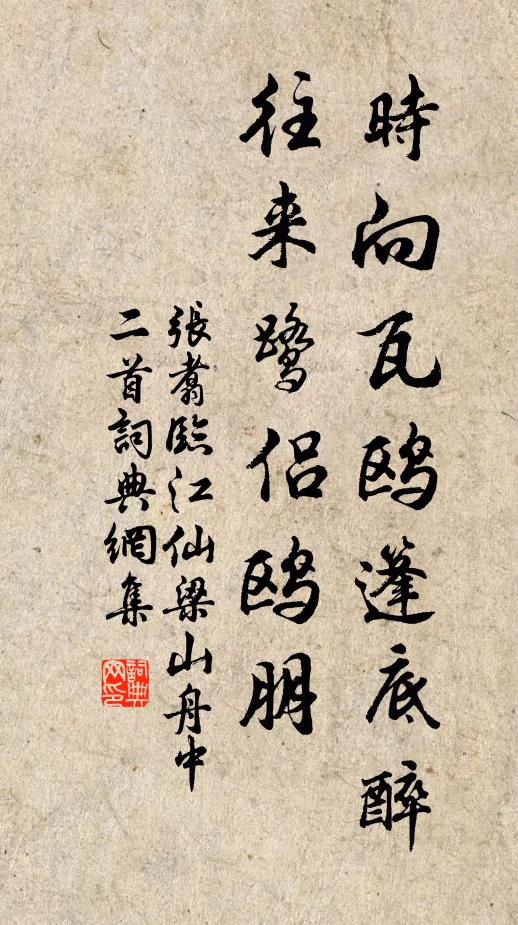 時向瓦鸥蓬底醉
往来鹭侣鸥朋
張翥臨江仙梁山舟中
二首詞典網集
詞典网印